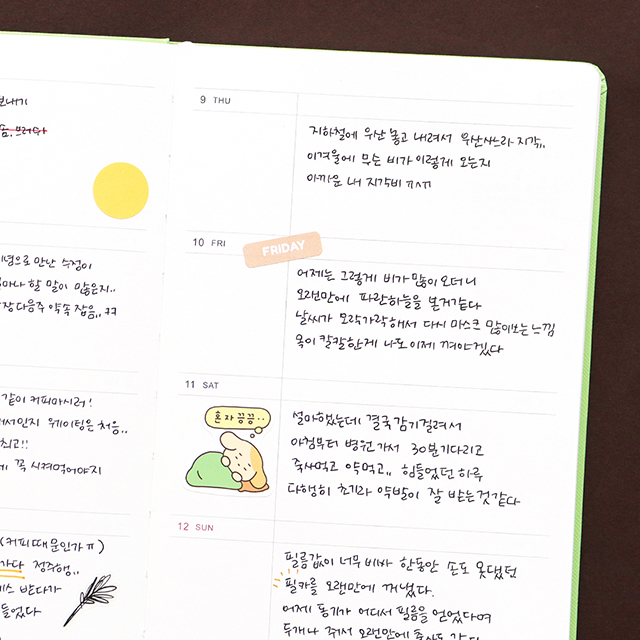 보내기
념으로 만난 수정이
마나 할 말이 많은지..
장 다음주 약속 잡음.. ㅋㅋ
같이 커피마시러!
서인지 웨이팅은 처음..
최고!!
꼭 시켜먹어야지
(커피때문인가ㅠ)
가다 정주행..
스 받다가
들었다
9 THU
지하철에 우산 놓고 내려서 우산사느라 지각..
이겨울에 무슨 비가 이렇게 오는지
아까운 내 지각비 ㅠㅠ
10 FRI
FRIDAY
어제는 그렇게 비가 많이 오더니
오랜만에 파란하늘을 본거같다
날씨가 오락가락해서 다시 마스크 많이보는 느낌
목이 칼칼한게 나도 이제 껴야겠다
11 SAT
혼자 끙끙..
설마했는데 결국 감기걸려서
아침부터 병원 가서 30분기다리고
죽사먹고 약먹고.. 힘들었던 하루
다행히 초기라 약발이 잘 받는것 같다
12 SUN
필름값이 너무 비싸 한동안 손도 못댔던
필카를 오랜만에 꺼냈다.
어제 동기가 어디서 필름을 얻었다며
두개나 줘서 오랜만에